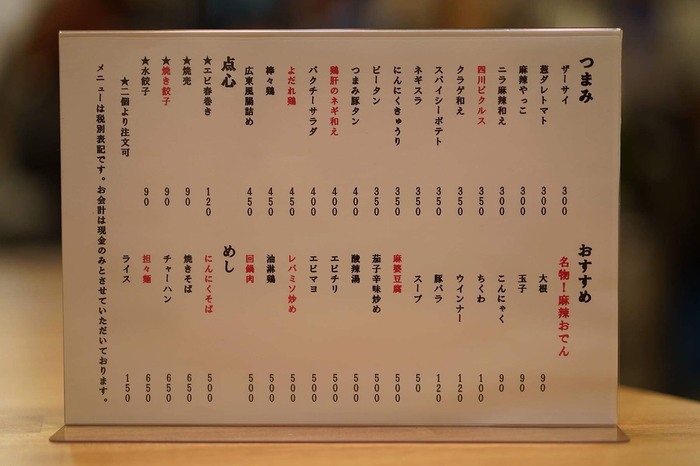 つまみ
ザーサイ 300
葱ダレトマト 300
麻辣やっこ 300
ニラ麻辣和え 300
四川ピクルス 300
クラゲ和え 350
スパイシーポテト 350
ネギスラ 350
にんにくきゅうり 350
ピータン 350
つまみ豚タン 400
鶏肝のネギ和え 400
パクチーサラダ 400
よだれ鶏 450
棒々鶏 450
広東風腸詰め 450
点心
★エビ春巻き 120
★焼売 90
★焼き餃子 90
★水餃子 90
★二個より注文可
おすすめ
名物！麻辣おでん
大根 90
玉子 90
こんにゃく 90
ちくわ 100
ウインナー 120
豚バラ 120
スープ 50
麻婆豆腐 500
茄子辛味炒め 500
酸辣湯 500
エビチリ 500
エビマヨ 500
レバミソ炒め 500
油淋鶏 500
回鍋肉 500
めし
にんにくそば 500
焼きそば 650
チャーハン 650
担々麺 650
ライス 150
メニューは税別表記です。お会計は現金のみとさせていただいております。